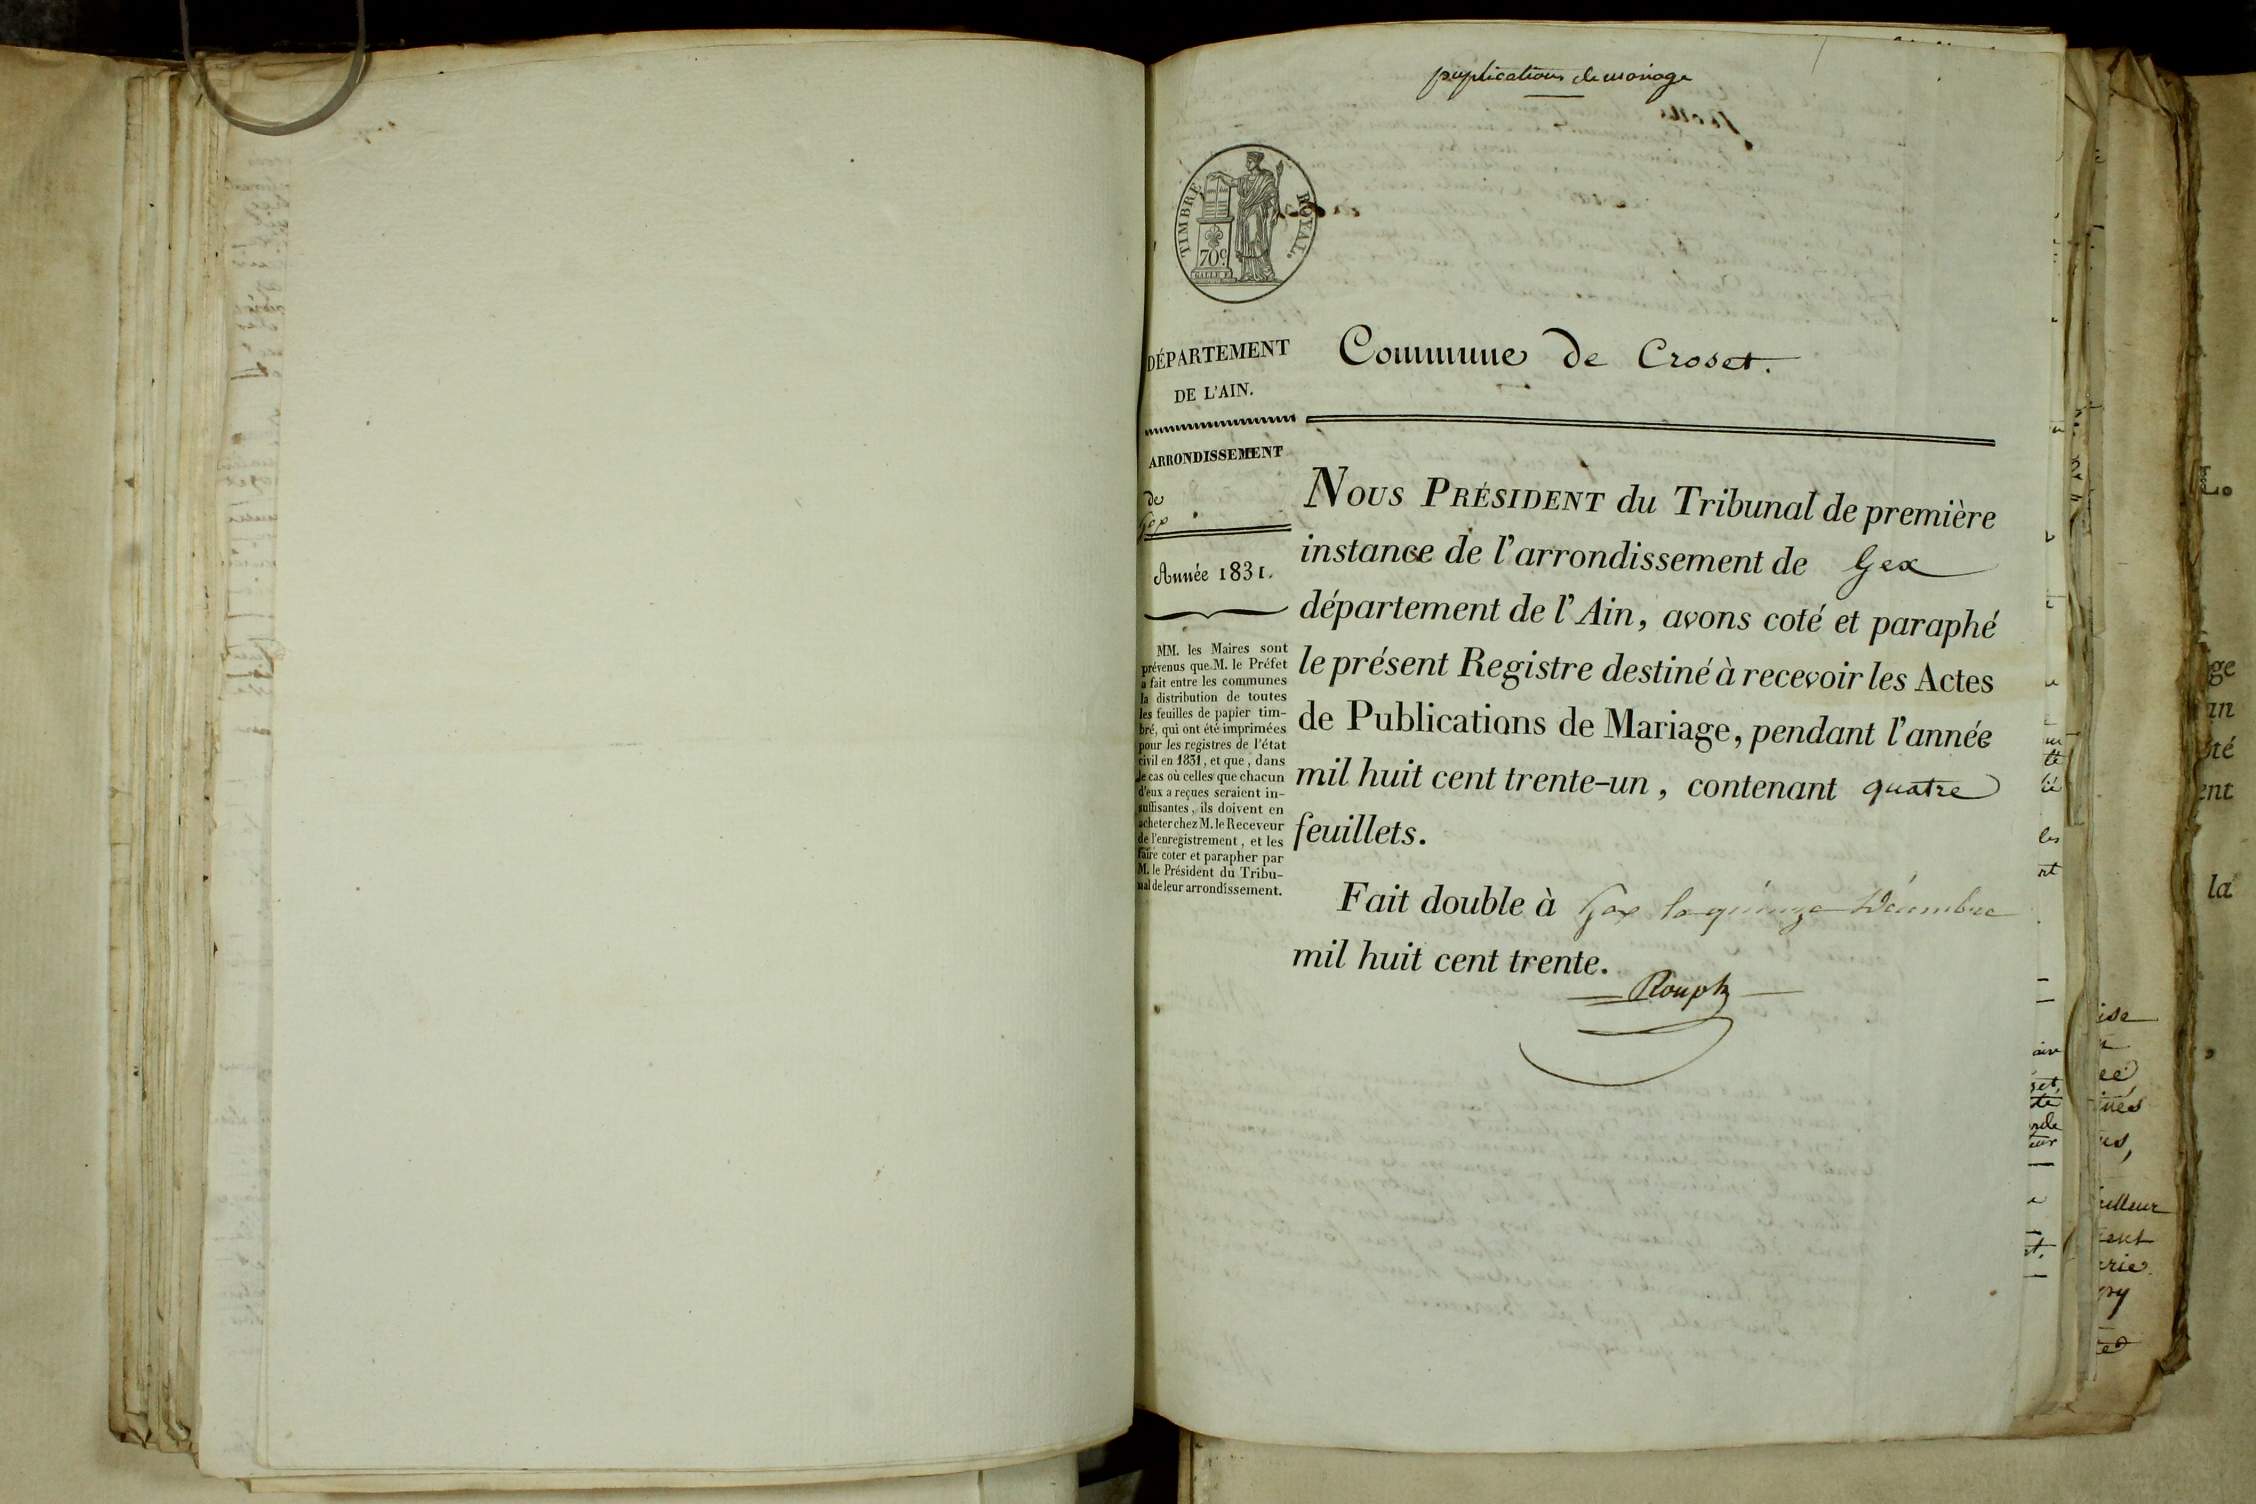 puplications de mariage
TIMBRE ROYAL.
70 c.
DÉPARTEMENT
DE L'AIN.
Commune de Croset.
ARRONDISSEMENT
de
Gex
Année 1831.
MM. les Maires sont
prévenus que M. le Préfet
a fait entre les communes
la distribution de toutes
les feuilles de papier tim-
bré, qui ont été imprimées
pour les registres de l'état
civil en 1831, et que, dans
le cas où celles que chacun
d'eux a reçues seraient in-
suffisantes, ils doivent en
acheter chez M. le Receveur
de l'enregistrement, et les
faire coter et parapher par
M. le Président du Tribu-
nal de leur arrondissement.
NOUS PRÉSIDENT du Tribunal de première
instance de l'arrondissement de Gex
département de l'Ain, avons coté et paraphé
le présent Registre destiné à recevoir les Actes
de Publications de Mariage, pendant l'année
mil huit cent trente-un, contenant quatre
feuillets.
Fait double à Gex le quinze Décembre
mil huit cent trente.